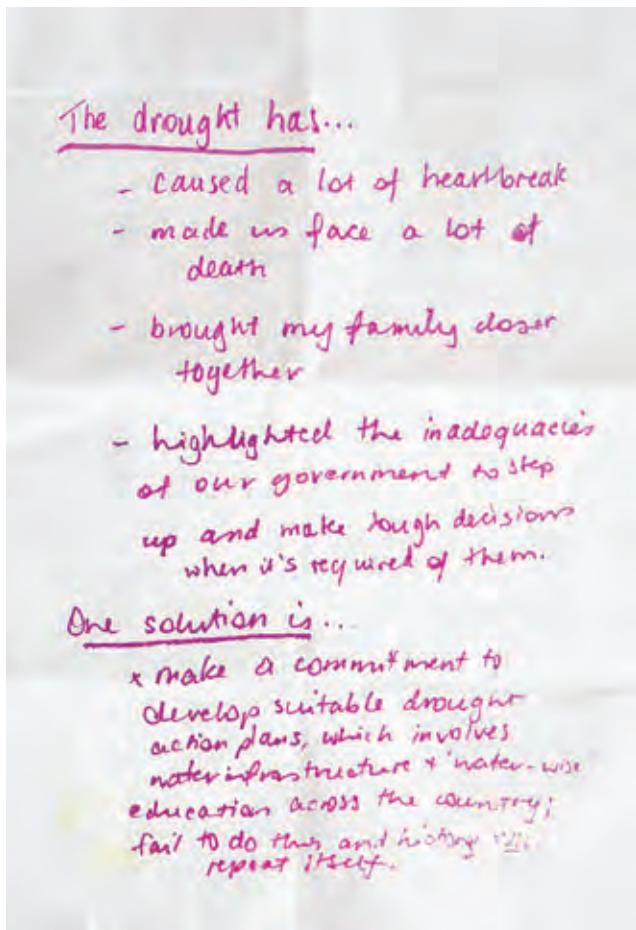 The drought has...
- caused a lot of heartbreak
- made us face a lot of
death
- brought my family closer
together
- highlighted the inadequacies
of our government to step
up and make tough decisions
when it's required of them.
One solution is...
* make a commitment to
develop suitable drought
action plans, which involves
water infrastructure + 'water-wise
education across the country;
fail to do this and history will
repeat itself.